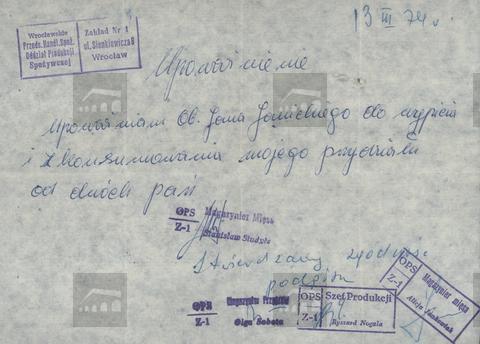 13 III 74r.
Wrocławskie
Przeds. Handl. Spoż.
Oddział Produkcji
Spożywczej
Zakład Nr 1
ul. Sienkiewicza 8
Wrocław
Upoważnienie
Upoważniam Ob. Jana Janickiego do wypicia
i zkonsumowania mojego przydziału
od dwóch pań
OPS
Z-1
Magazynier Mięsa
Stanisław Studuta
Stwierdzamy zgodność
podpisu
OPS
Z-1
Olga Sobota
OPS
Z-1
Szef Produkcji
Ryszard Nogala
OPS
Z-1
Magazynier mięsa
Alicja